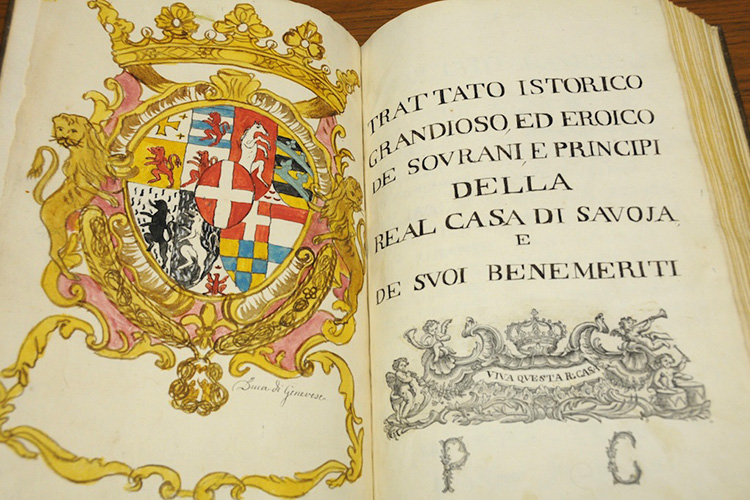 Duca di Genevese
TRATTATO ISTORICO
GRANDIOSO, ED EROICO
DE SOVRANI, E PRINCIPI
DELLA
REAL CASA DI SAVOJA,
E
DE SVOI BENEMERITI
VIVA QUESTA R. CASA
P C